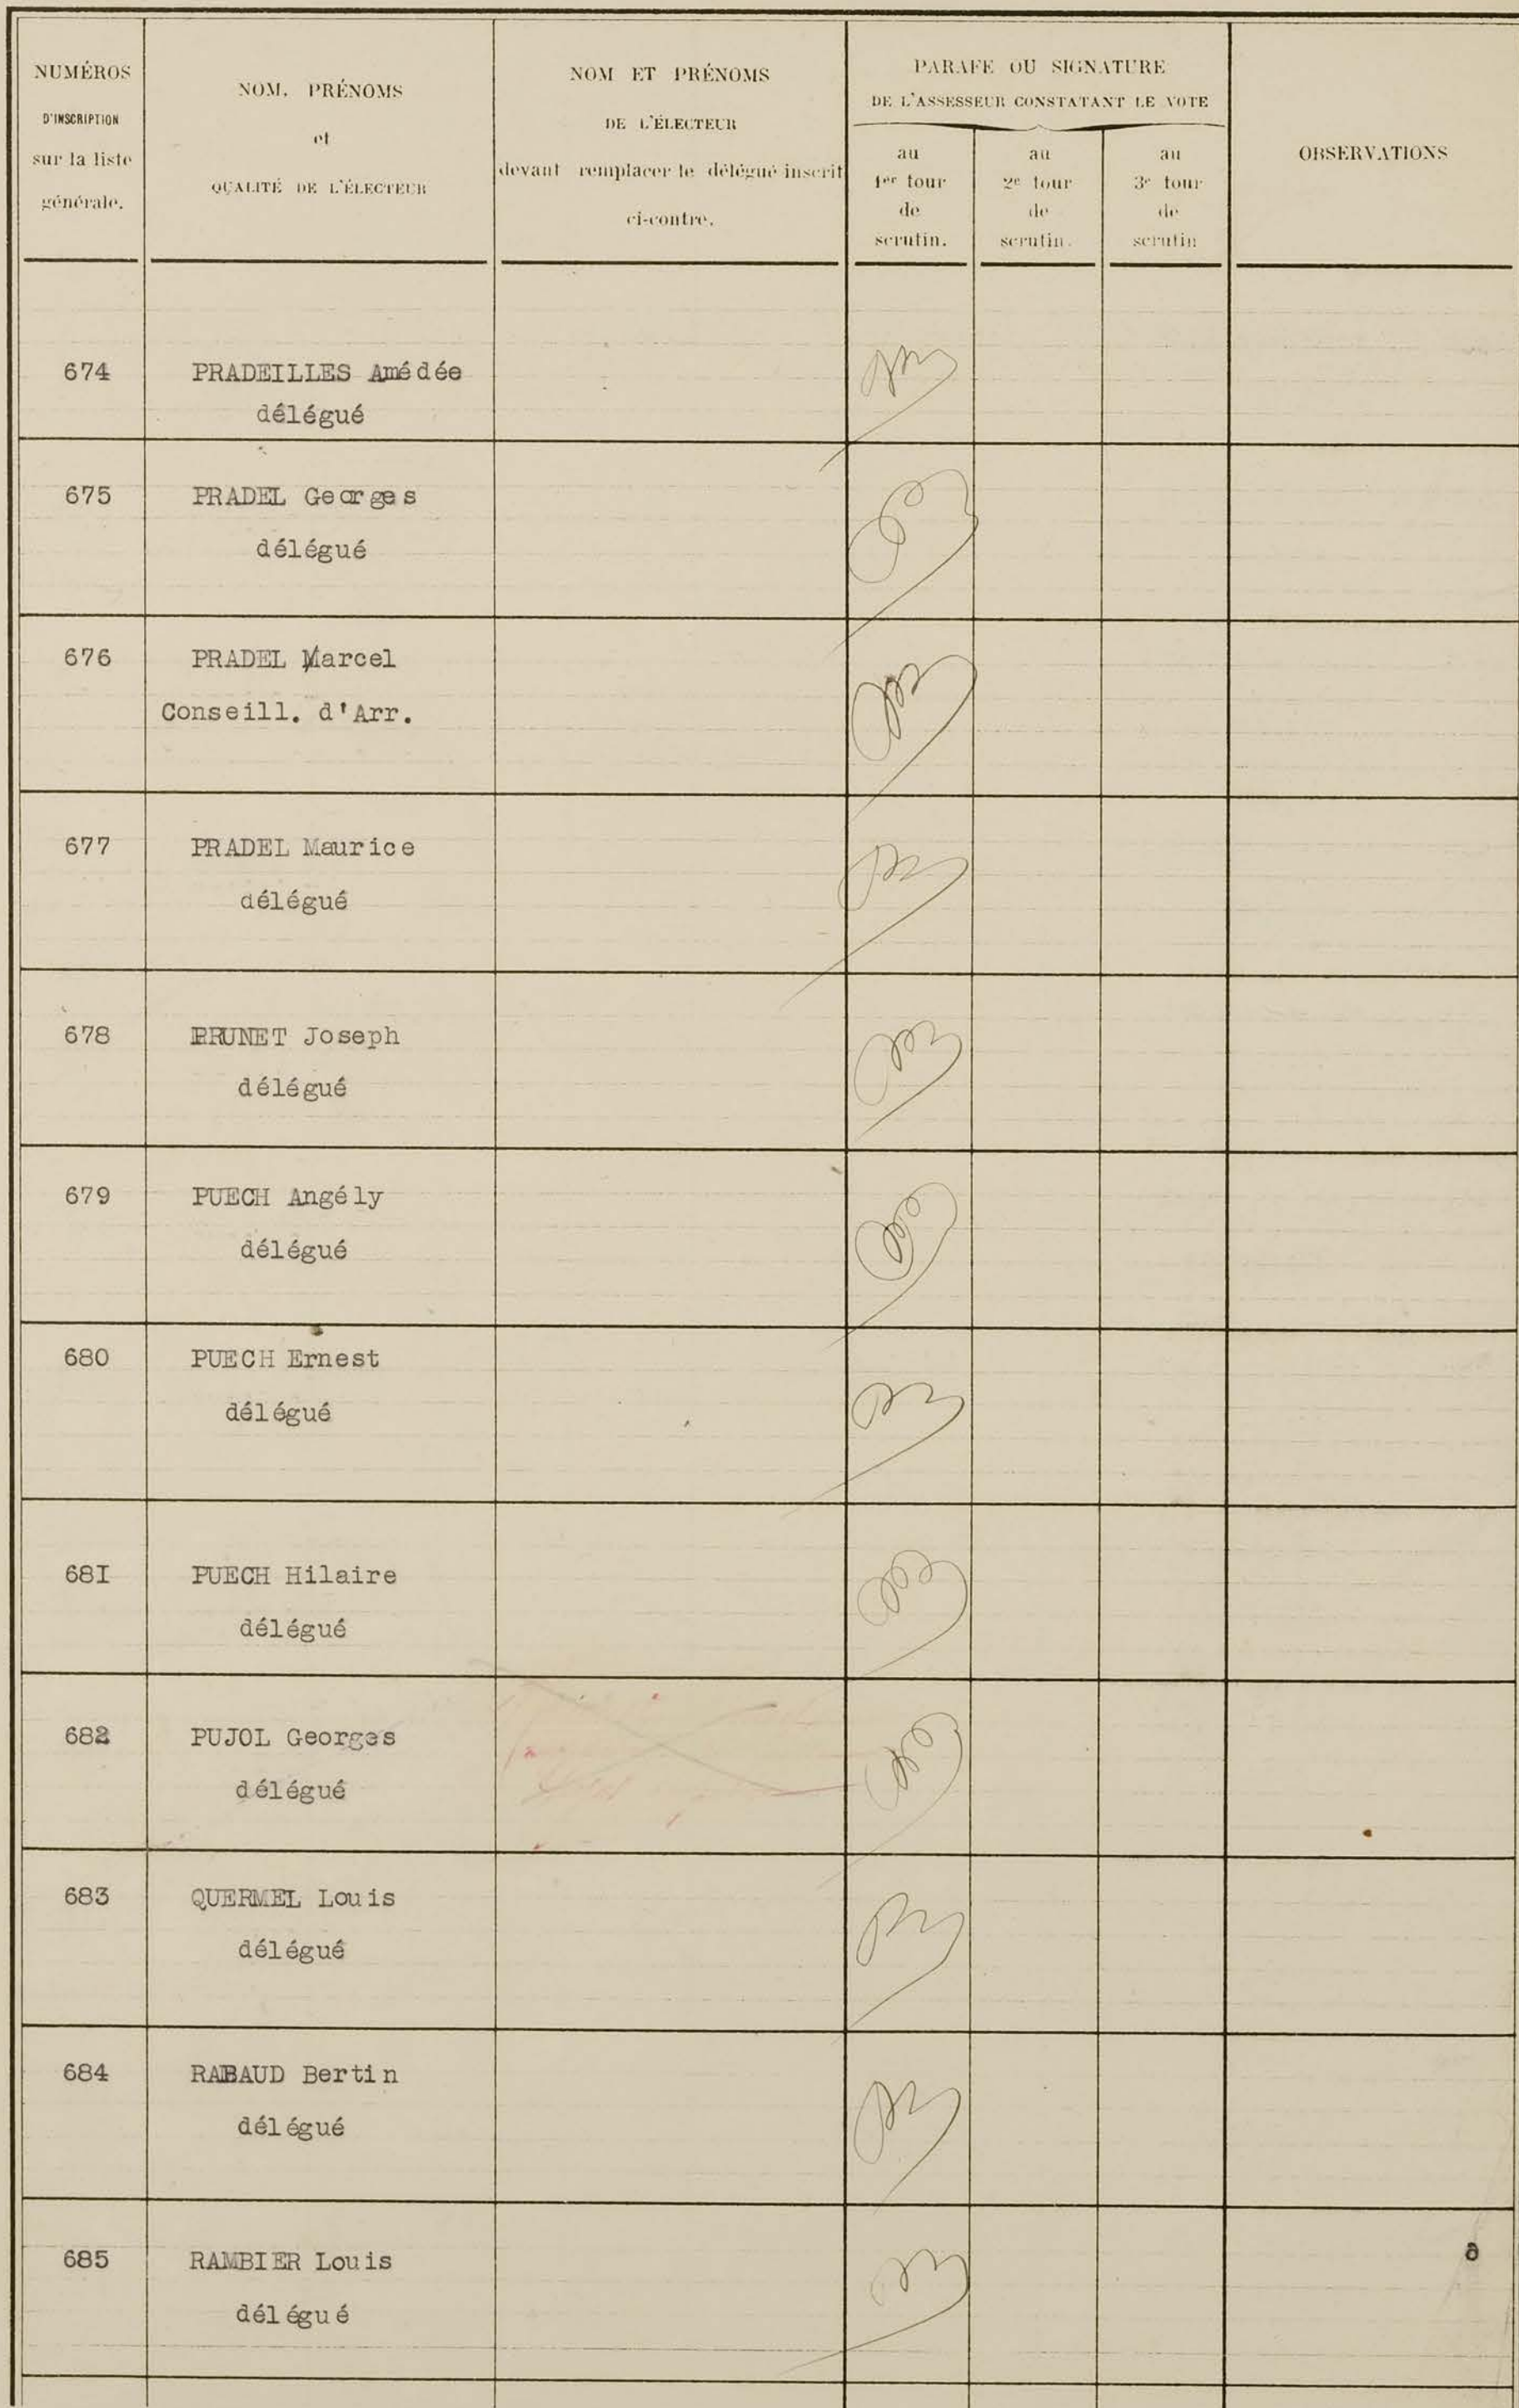 NUMÉROS
D'INSCRIPTION
sur la liste
générale.
NOM, PRÉNOMS
et
QUALITÉ DE L'ÉLECTEUR
NOM ET PRÉNOMS
DE L'ÉLECTEUR
devant remplacer le délégué inscrit
ci-contre.
PARAFE OU SIGNATURE
DE L'ASSESSEUR CONSTATANT LE VOTE
au
1er tour
de
scrutin.
au
2e tour
de
scrutin.
au
3e tour
de
scrutin
OBSERVATIONS
674 PRADEILLES Amédée
délégué
675 PRADEL Georges
délégué
676 PRADEL Marcel
Conseill. d'Arr.
677 PRADEL Maurice
délégué
678 PRUNET Joseph
délégué
679 PUECH Angély
délégué
680 PUECH Ernest
délégué
68I PUECH Hilaire
délégué
682 PUJOL Georges
délégué
683 QUERMEL Louis
délégué
684 RABAUD Bertin
délégué
685 RAMBIER Louis
délégué